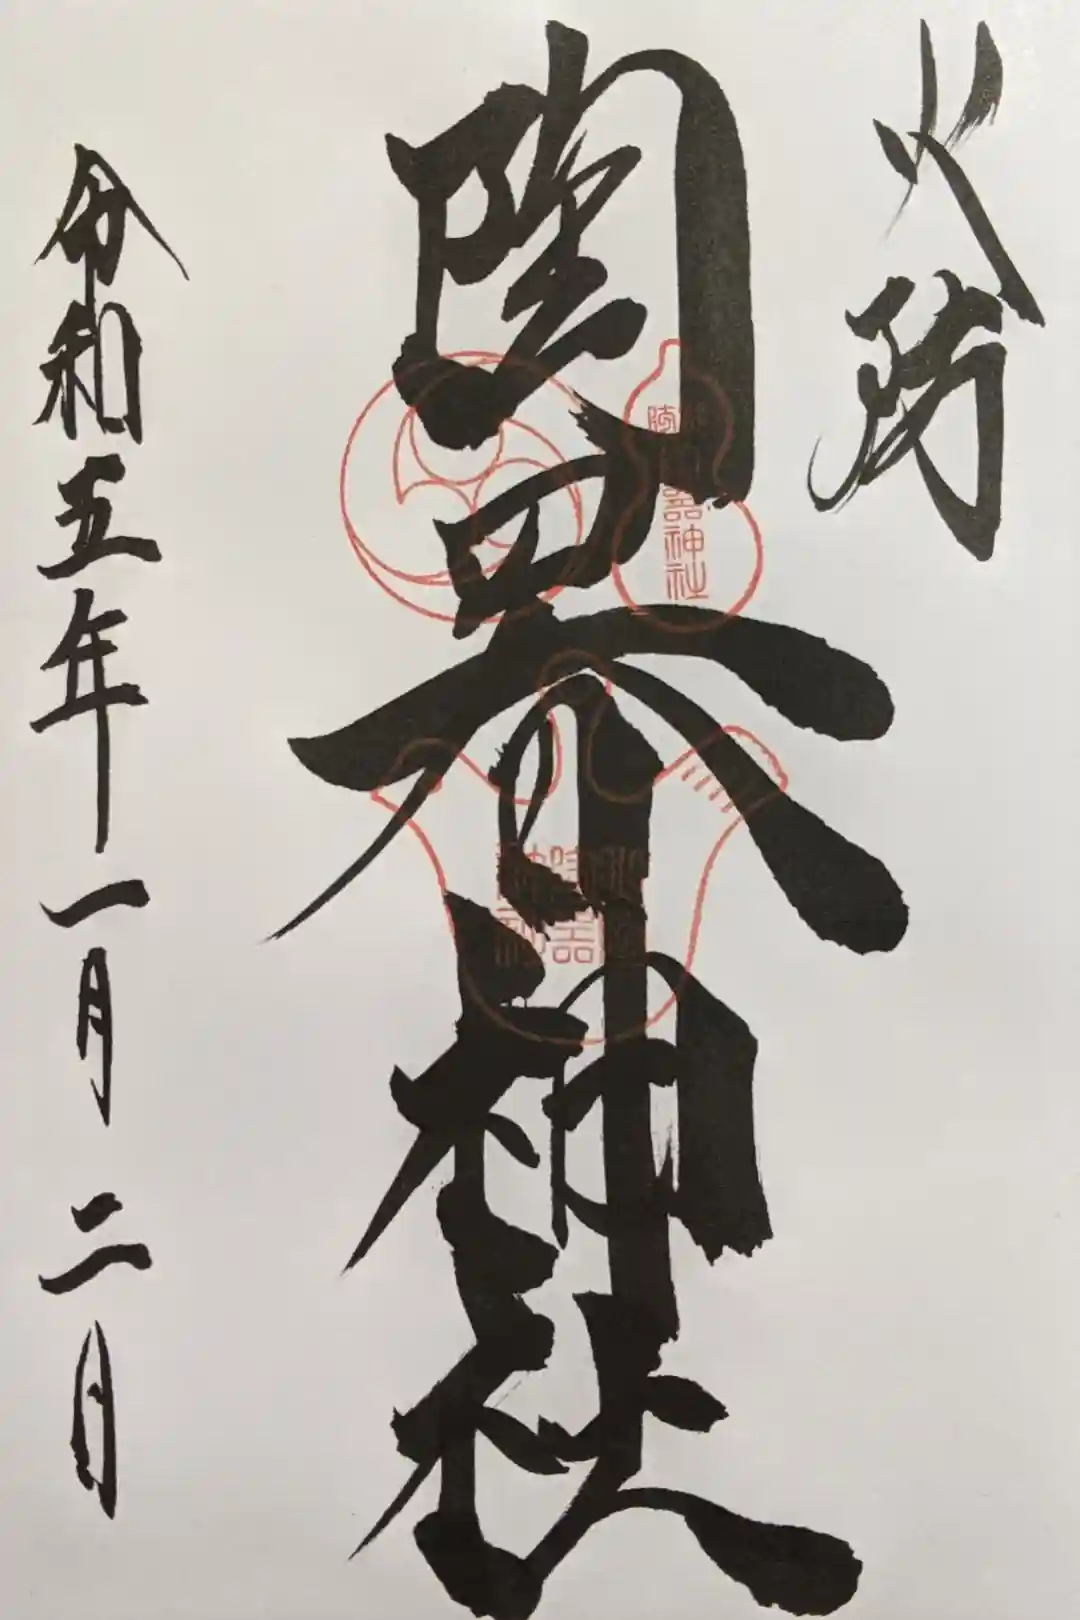 火防
陶器神社
令和五年一月二日
陶器神社
火防
陶器
神社